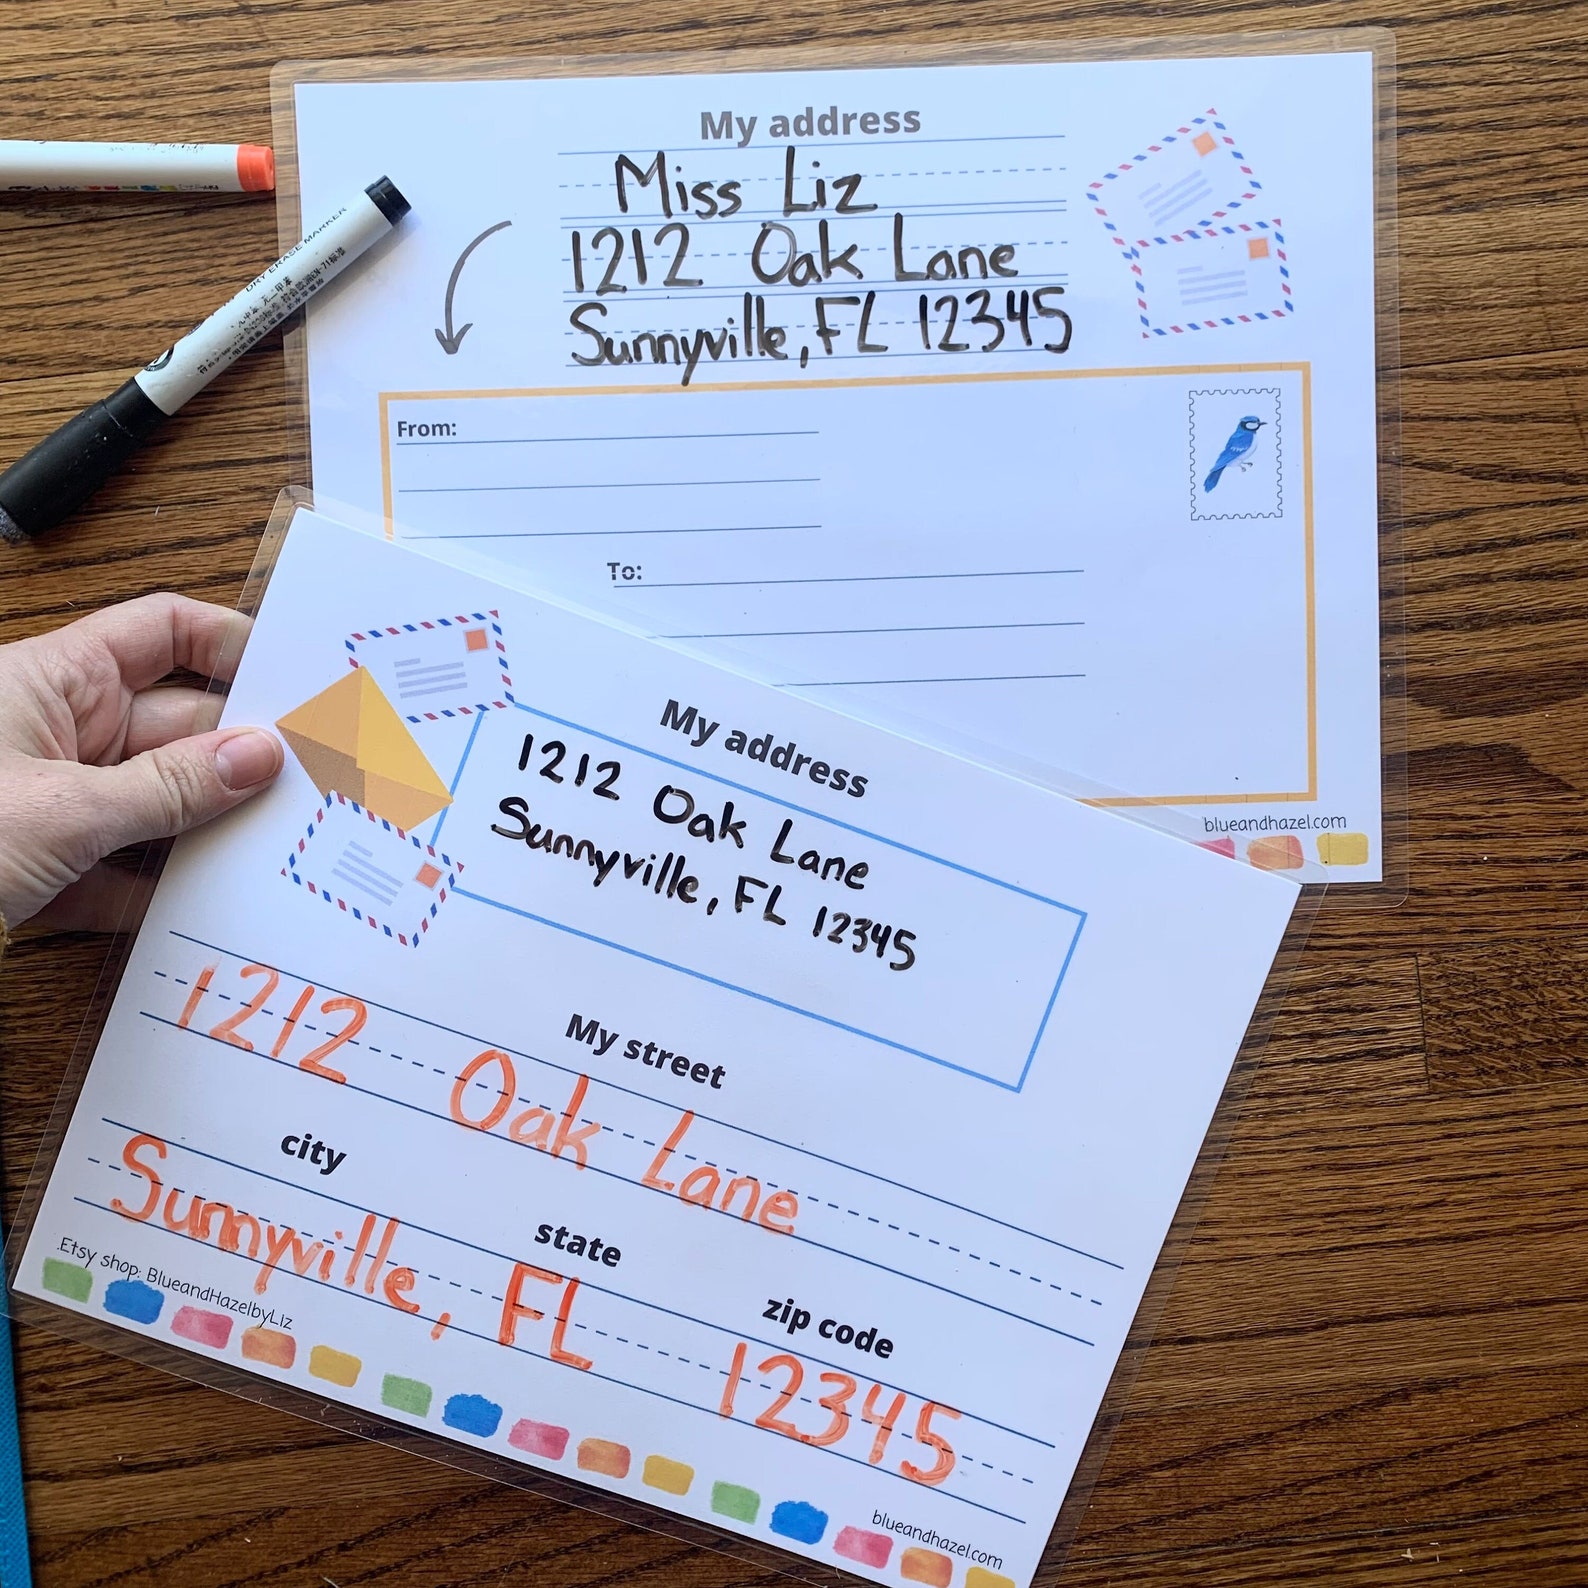 My address
Miss Liz
1212 Oak Lane
Sunnyville, FL 12345
DRY ERASE MARKER
From:
To:
blueandhazel.com
My address
1212 Oak Lane
Sunnyville, FL 12345
My street
1212 Oak Lane
city
state
zip code
Sunnyville, FL 12345
Etsy shop: BlueandHazelbyLiz
blueandhazel.com